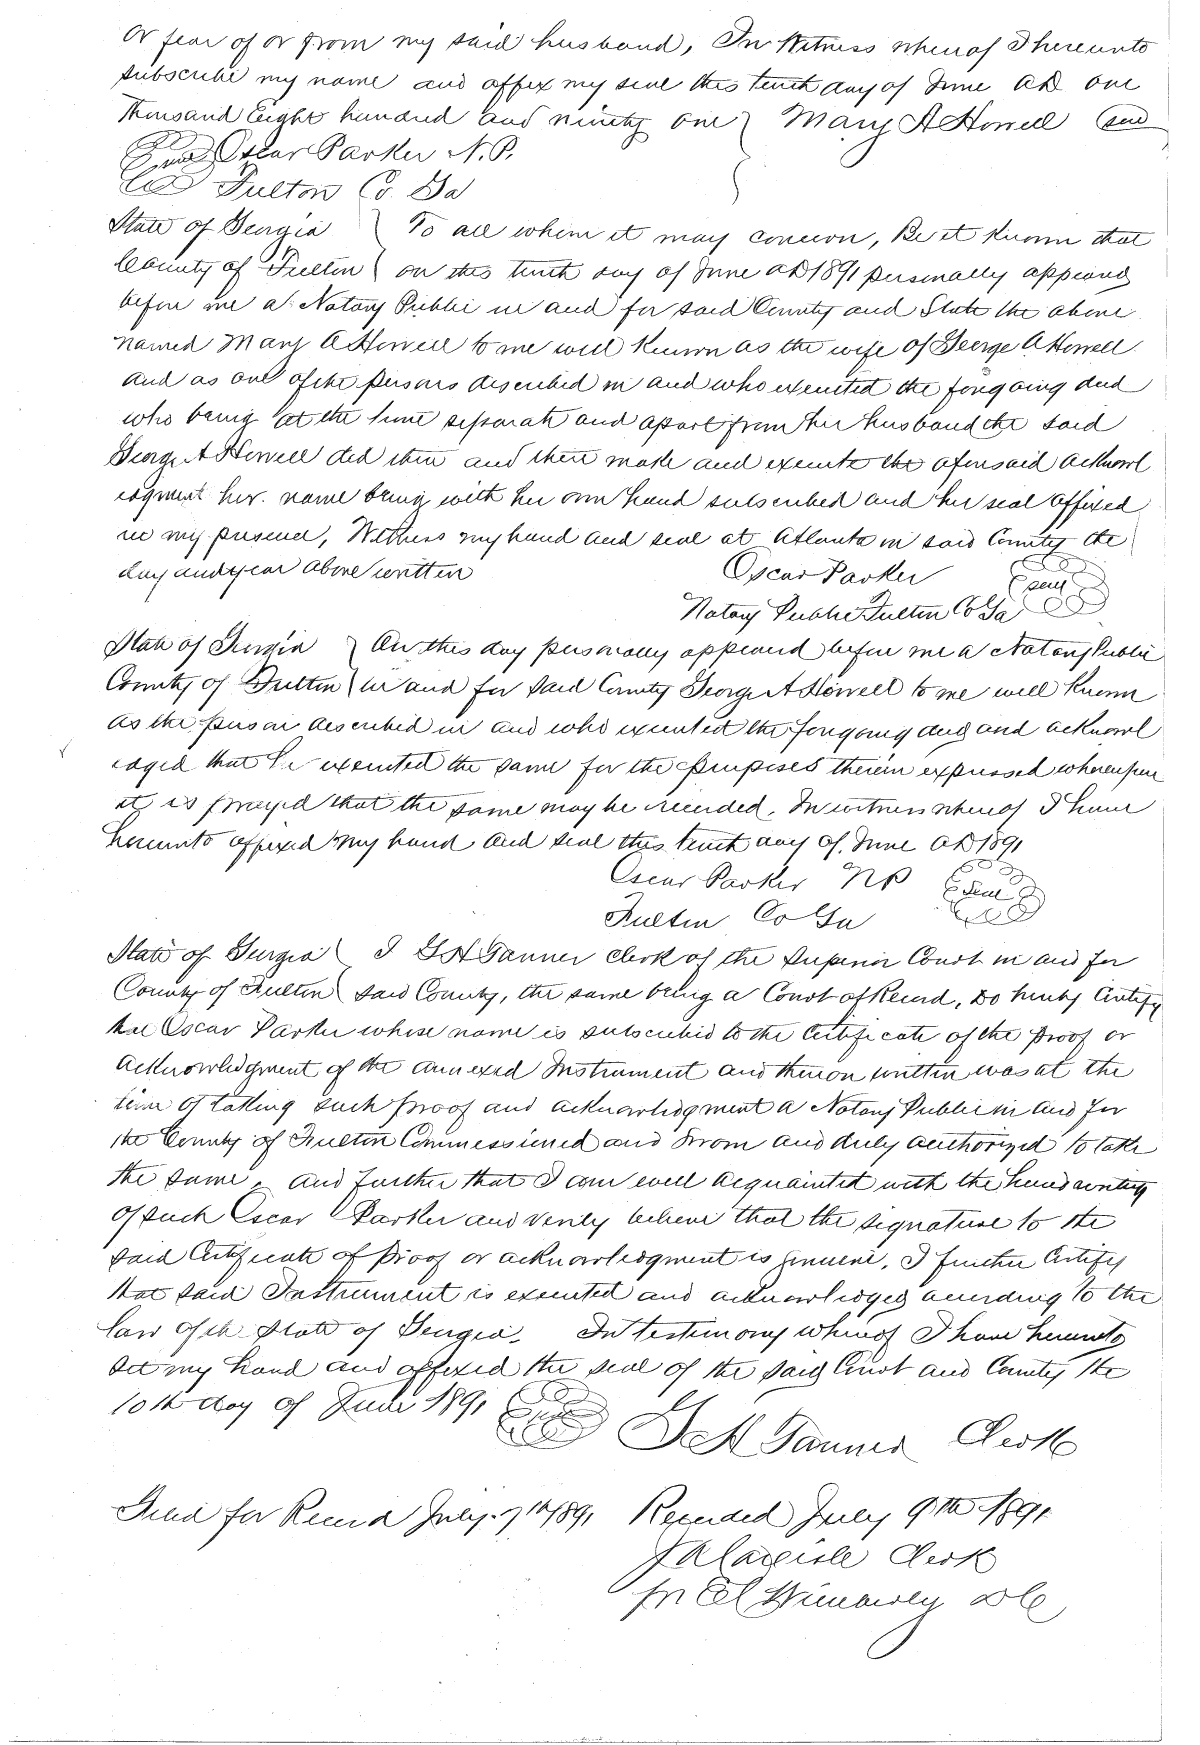 or fear of or from my said husband, In Witness whereof I hereunto
subscribe my name and affix my seal this tenth day of June AD one
Thousand Eight hundred and ninety one } Mary A Howell (seal)
(Seal) Oscar Parker N.P.
Fulton Co. Ga
State of Georgia } To all whom it may concern, Be it Known that
County of Fulton } on this tenth day of June AD 1891 personally appeared
before me a Notary Public in and for said County and State the above
named Mary A Howell to me well Known as the wife of George A Howell
and as one of the persons described in and who executed the foregoing deed
who being at the time separate and apart from her husband the said
George A Howell did then and there make and execute the aforesaid acknowl
edgment her name being with her own hand subscribed and her seal affixed
in my presence, Witness my hand and seal at Atlanta in said County the
day and year above written Oscar Parker (Seal)
Notary Public Fulton Co Ga
State of Georgia } On this day personally appeared before me a Notary Public
County of Fulton } in and for said County George A Howell to me well Known
as the person described in and who executed the foregoing deed and acknowl
edged that he executed the same for the purposes therein expressed whereupon
it is prayed that the same may be recorded. In witness whereof I have
hereunto affixed my hand and seal this tenth day of June AD 1891
Oscar Parker NP (Seal)
Fulton Co Ga
State of Georgia } I G H Tanner Clerk of the Superior Court in and for
County of Fulton } said County, the same being a Court of Record, Do hereby Certify
that Oscar Parker whose name is subscribed to the Certificate of the proof or
acknowledgment of the annexed Instrument and thereon written was at the
time of taking such proof and acknowledgment a Notary Public in and for
the County of Fulton Commissioned and sworn and duly authorized to take
the same, and further that I am well acquainted with the handwriting
of such Oscar Parker and verily believe that the signature to the
said Certificate of proof or acknowledgment is genuine, I further Certify
that said Instrument is executed and acknowledged according to the
law of the State of Georgia. In testimony whereof I have hereunto
set my hand and affixed the seal of the said Court and County the
10th day of June 1891 (Seal) G H Tanner Clerk
Filed for Record July 7th 1891 Recorded July 9th 1891
J A Carlisle Clerk
DC